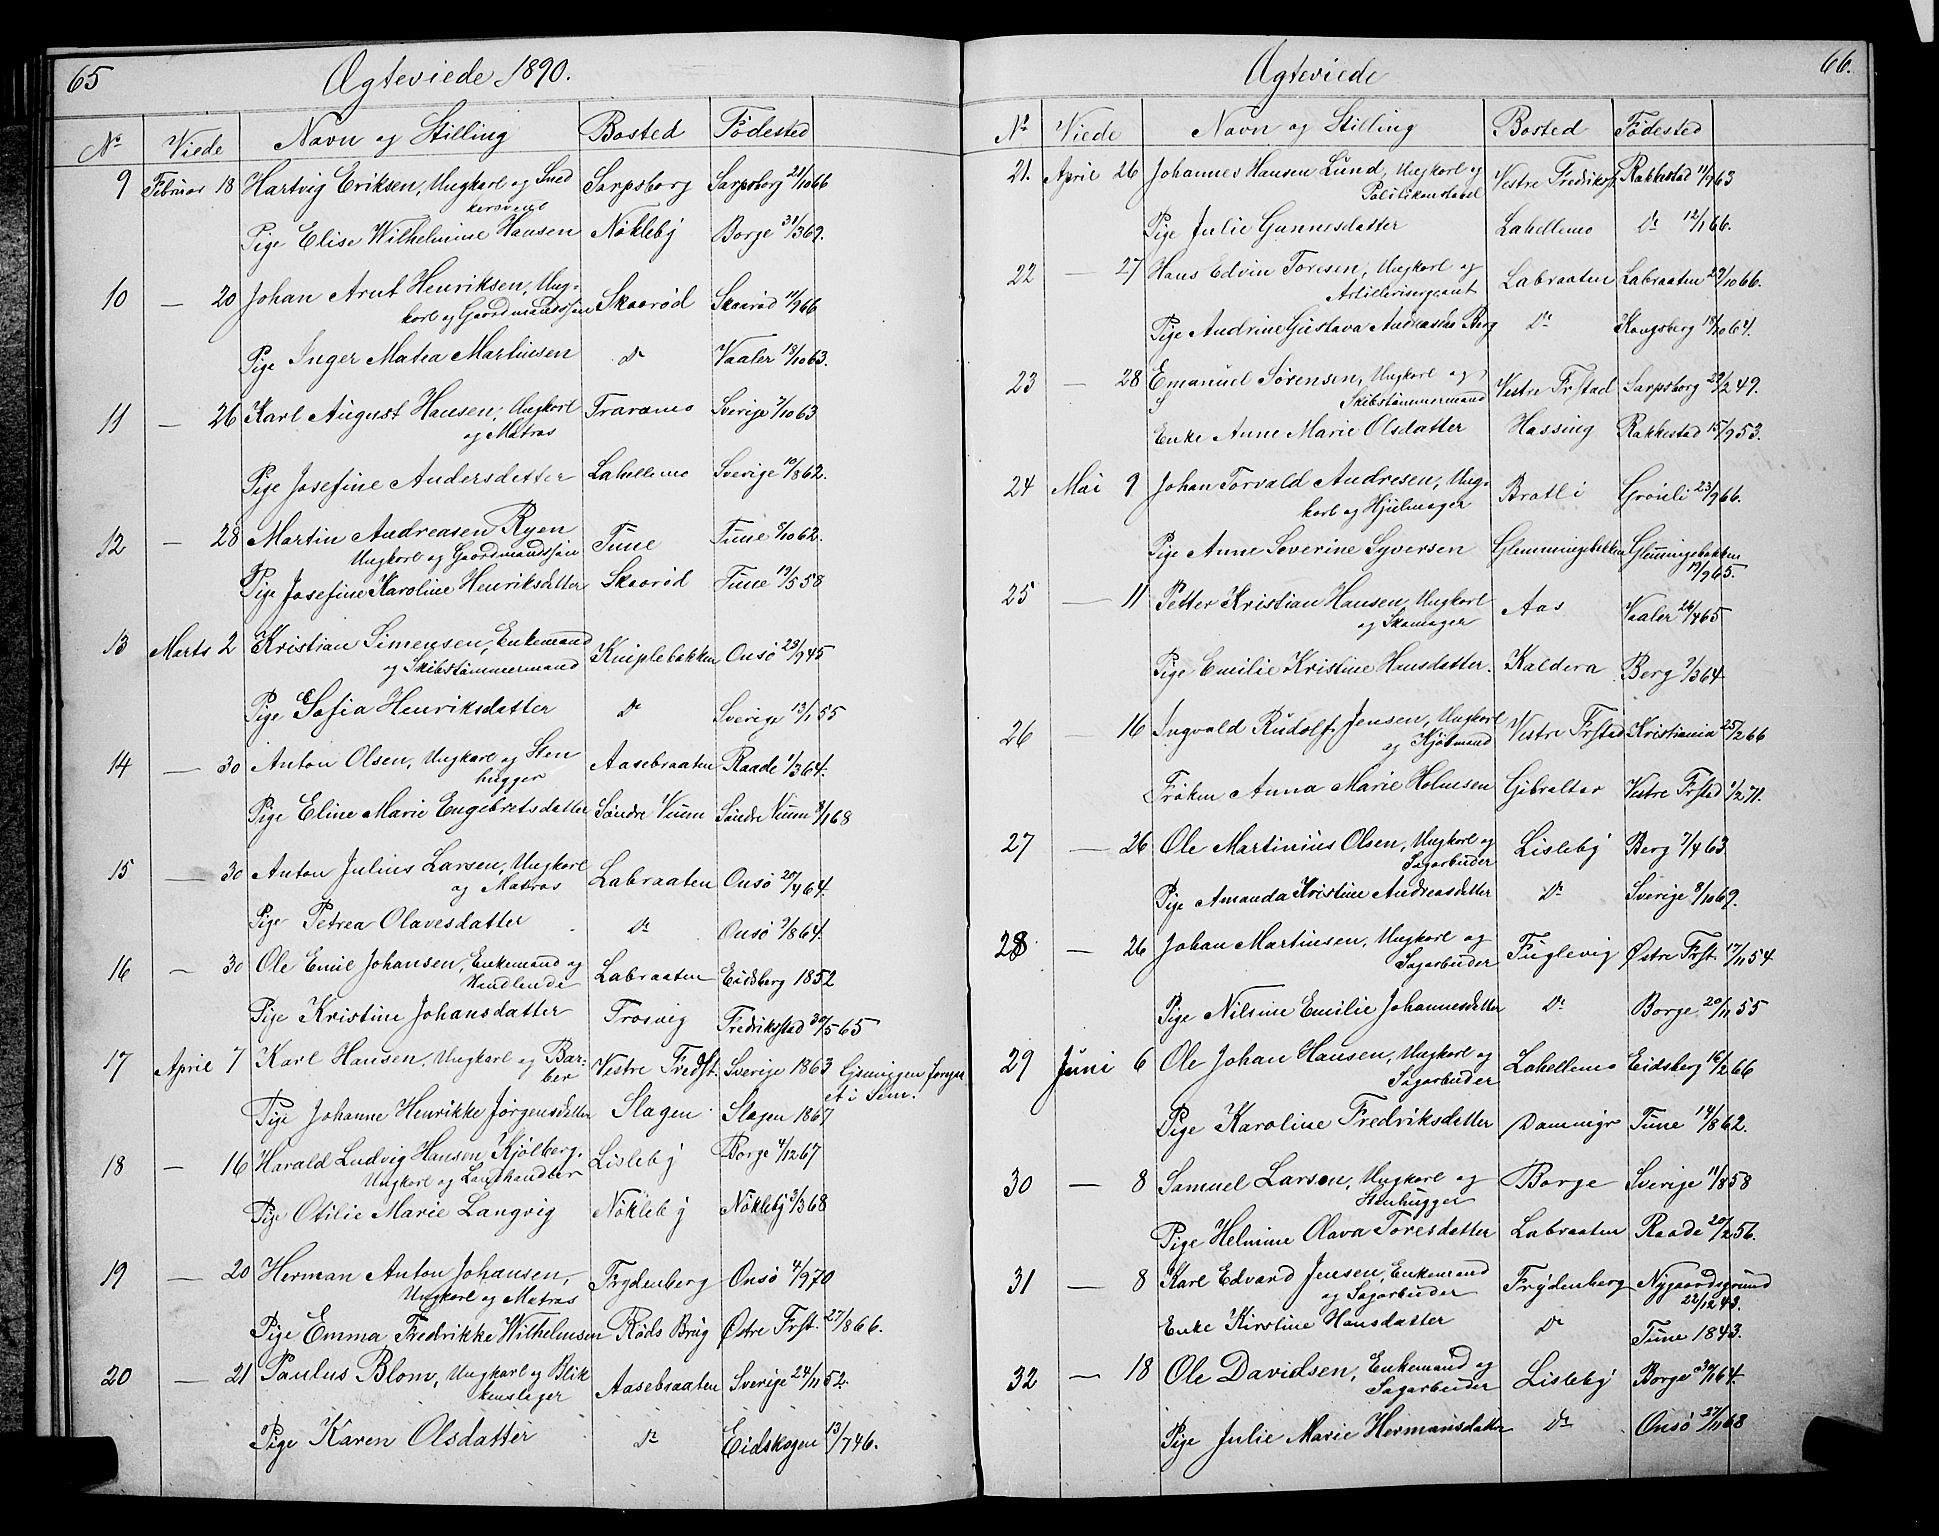 65 Ægteviede 1890.
No Viede Navn og Stilling Bosted Födested
9 Februar 18 Hartvig Eriksen, Ungkarl og Sned Sarpsborg Sarpsborg 21/10 66
kersvend
Pige Elise Wilhelmine Hansen Nökleby Borge 31/3 69.
10 — 20 Johan Arnt Henriksen, Ung- Skaaröd Skaaröd 11/9 66
karl og Gaardmandssön
Pige Inger Matea Martinsen do Vaaler 18/10 63.
11 — 26 Karl August Hansen, Ungkarl Traramo Sverige 7/10 63
og Matros
Pige Josefine Andersdatter Lahellemo Sverige 10/8 62.
12 — 28 Martin Andreasen Ryen Tune Tune 5/10 62.
Ungkarl og Gaardmandssön
Pige Josefine Karoline Henriksdatter Skaaröd Tune 19/5 58
13 Marts 2 Kristian Simensen, Enkemand Kniplebakken Onsö 23/9 45
og Skibstömmermand
Pige Sofia Henriksdatter do Sverige 13/1 55
14 — 30 Anton Olsen, Ungkarl og Sten Aasebraaten Raade 1/3 64.
hugger
Pige Eline Marie Engebretsdatter Söndre Vium Söndre Vium 9/1 68
15 — 30 Anton Julius Larsen, Ungkarl Labraaten Onsö 20/4 64.
og Matros
Pige Petrea Olavesdatter do Onsö 9/8 64.
16 — 30 Ole Emil Johansen, Enkemand og Labraaten Eidsberg 1852
Handlende
Pige Kristine Johansdatter Trosvig Fredriksstad 30/5 65
17 April 7 Karl Hansen, Ungkarl og Bar- Vestre Fredst. Sverige 1863 Lysningen foregaa
ber et i Sem.
Pige Johanne Henrikke Jörgensdatter Slagen Slagen 1867
18 — 16 Harald Ludvig Hansen Kjölberg. Lisleby Borge 4/12 67
Ungkarl og Landhandler
Pige Otilie Marie Langvig Nökleby Nökleby 3/3 68
19 — 20 Herman Anton Johansen, Frydenberg Onsö 4/9 70
Ungkarl og Matros
Pige Emma Fredrikke Wilhelmsen Röds Brug Østre Frst. 27/8 66.
20 — 21 Paulus Blom, Ungkarl og Blik Aasebraaten Sverige 24/11 52.
kenslager
Pige Karen Olsdatter do Eidskogen 13/7 46.
Ægteviede 66.
No Viede Navn og Stilling Bosted Födested
21. April 26 Johannes Hansen Lund, Ungkarl og Vestre Fredrikst. Rakkestad 11/7 63
Politikonstabel
Pige Julie Gunnesdatter Lahellemo do 12/1 66.
22 — 27 Hans Edvin Toresen, Ungkarl og Labraaten Labraaten 29/10 66.
Artillerisergeant
Pige Andrine Gustava Andreasdtr Berg do Kongsberg 18/10 64.
23 — 28 Emanuel Sörensen, Ungkarl og Vestre Frstad Sarpsborg 29/2 49.
Skibstömmermand
Enke Anne Marie Olsdatter Hassing Rakkestad 15/9 53.
24 Mai 9 Johan Torvald Andresen, Ung- Bratli Grönli 23/9 66.
karl og Hjulmager
Pige Anne Severine Syversen Glemmingebakken Glemmingebakken
19/9 65.
25 — 11 Petter Kristian Hansen, Ungkarl Aas Vaaler 26/4 65
og Skomager
Pige Emilie Kristine Hansdatter. Kaldera Berg 9/3 64.
26 — 16 Ingvald Rudolf Jensen, Ungkarl Vestre Frstad Kristiania 25/2 66
og Kjöbmand
Fröken Anna Marie Holmsen Gibraltar Vestre Frstad 1/2 71.
27 — 26 Ole Martinius Olsen, Ungkarl og Lisleby Berg 7/4 63
Sagarbeider
Pige Amanda Kristine Andreasdatter do Sverige 8/10 69.
28 — 26 Johan Martinsen, Ungkarl og Fuglevig Østre Frst. 17/11 54
Sagarbeider
Pige Nilsine Emilie Johannesdatter do Borge 20/11 55
29 Juni 6 Ole Johan Hansen, Ungkarl og Lahellemo Eidsberg 16/2 66
Sagarbeider
Pige Karoline Fredriksdatter Dammyr Tune 14/8 62.
30 — 8 Samuel Larsen, Ungkarl og Borge Sverige 11/8 58
Stenhugger
Pige Helmine Olava Toresdatter Labraaten Raade 20/2 56.
31 — 8 Karl Edvard Jensen, Enkemand Frydenberg Nygaardsgrund
og Sagarbeider 22/12 43.
Enke Kirstine Hansdatter do Tune 1843.
32 — 18 Ole Davidsen, Enkemand og Lisleby Borge 30/1 64.
Sagarbeider
Pige Julie Marie Hermansdatter do Onsö 27/11 68